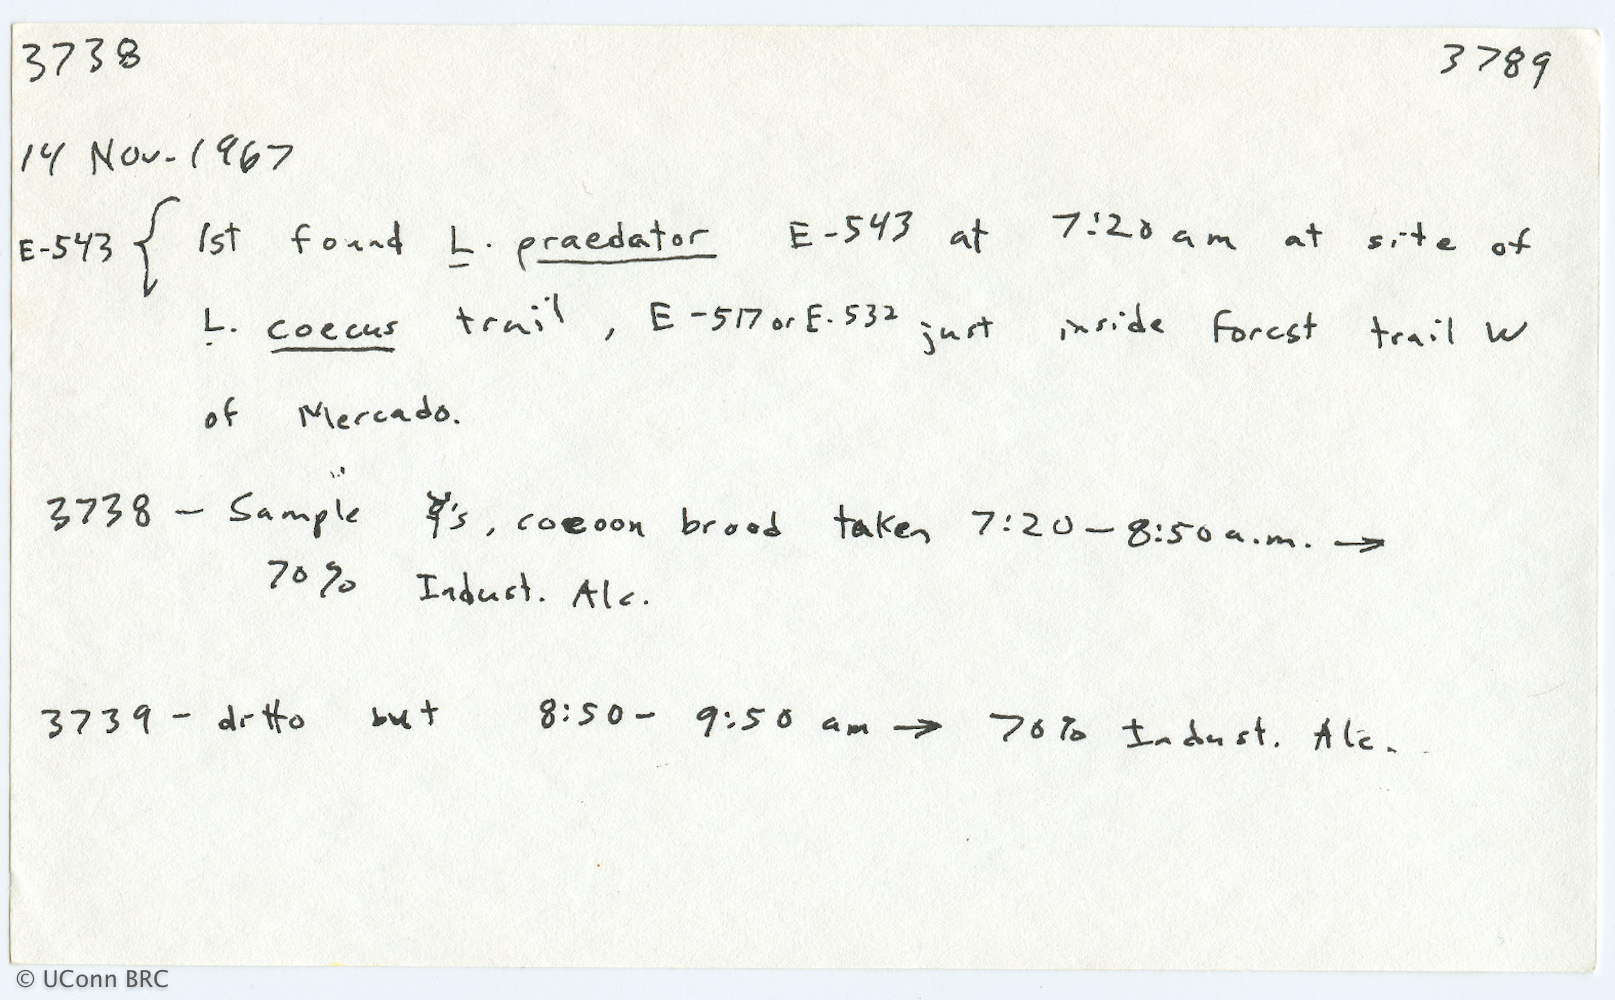 3738 3789
14 Nov. 1967
E-543 { 1st found L. praedator E-543 at 7:20 am at site of
L. coecus trail, E-517 or E-532 just inside forest trail W
of Mercado.
3738 - Sample ☿'s, cocoon brood taken 7:20 - 8:50 a.m. →
70% Indust. Alc.
3739 - ditto but 8:50 - 9:50 am → 70% Indust. Alc.
© UConn BRC